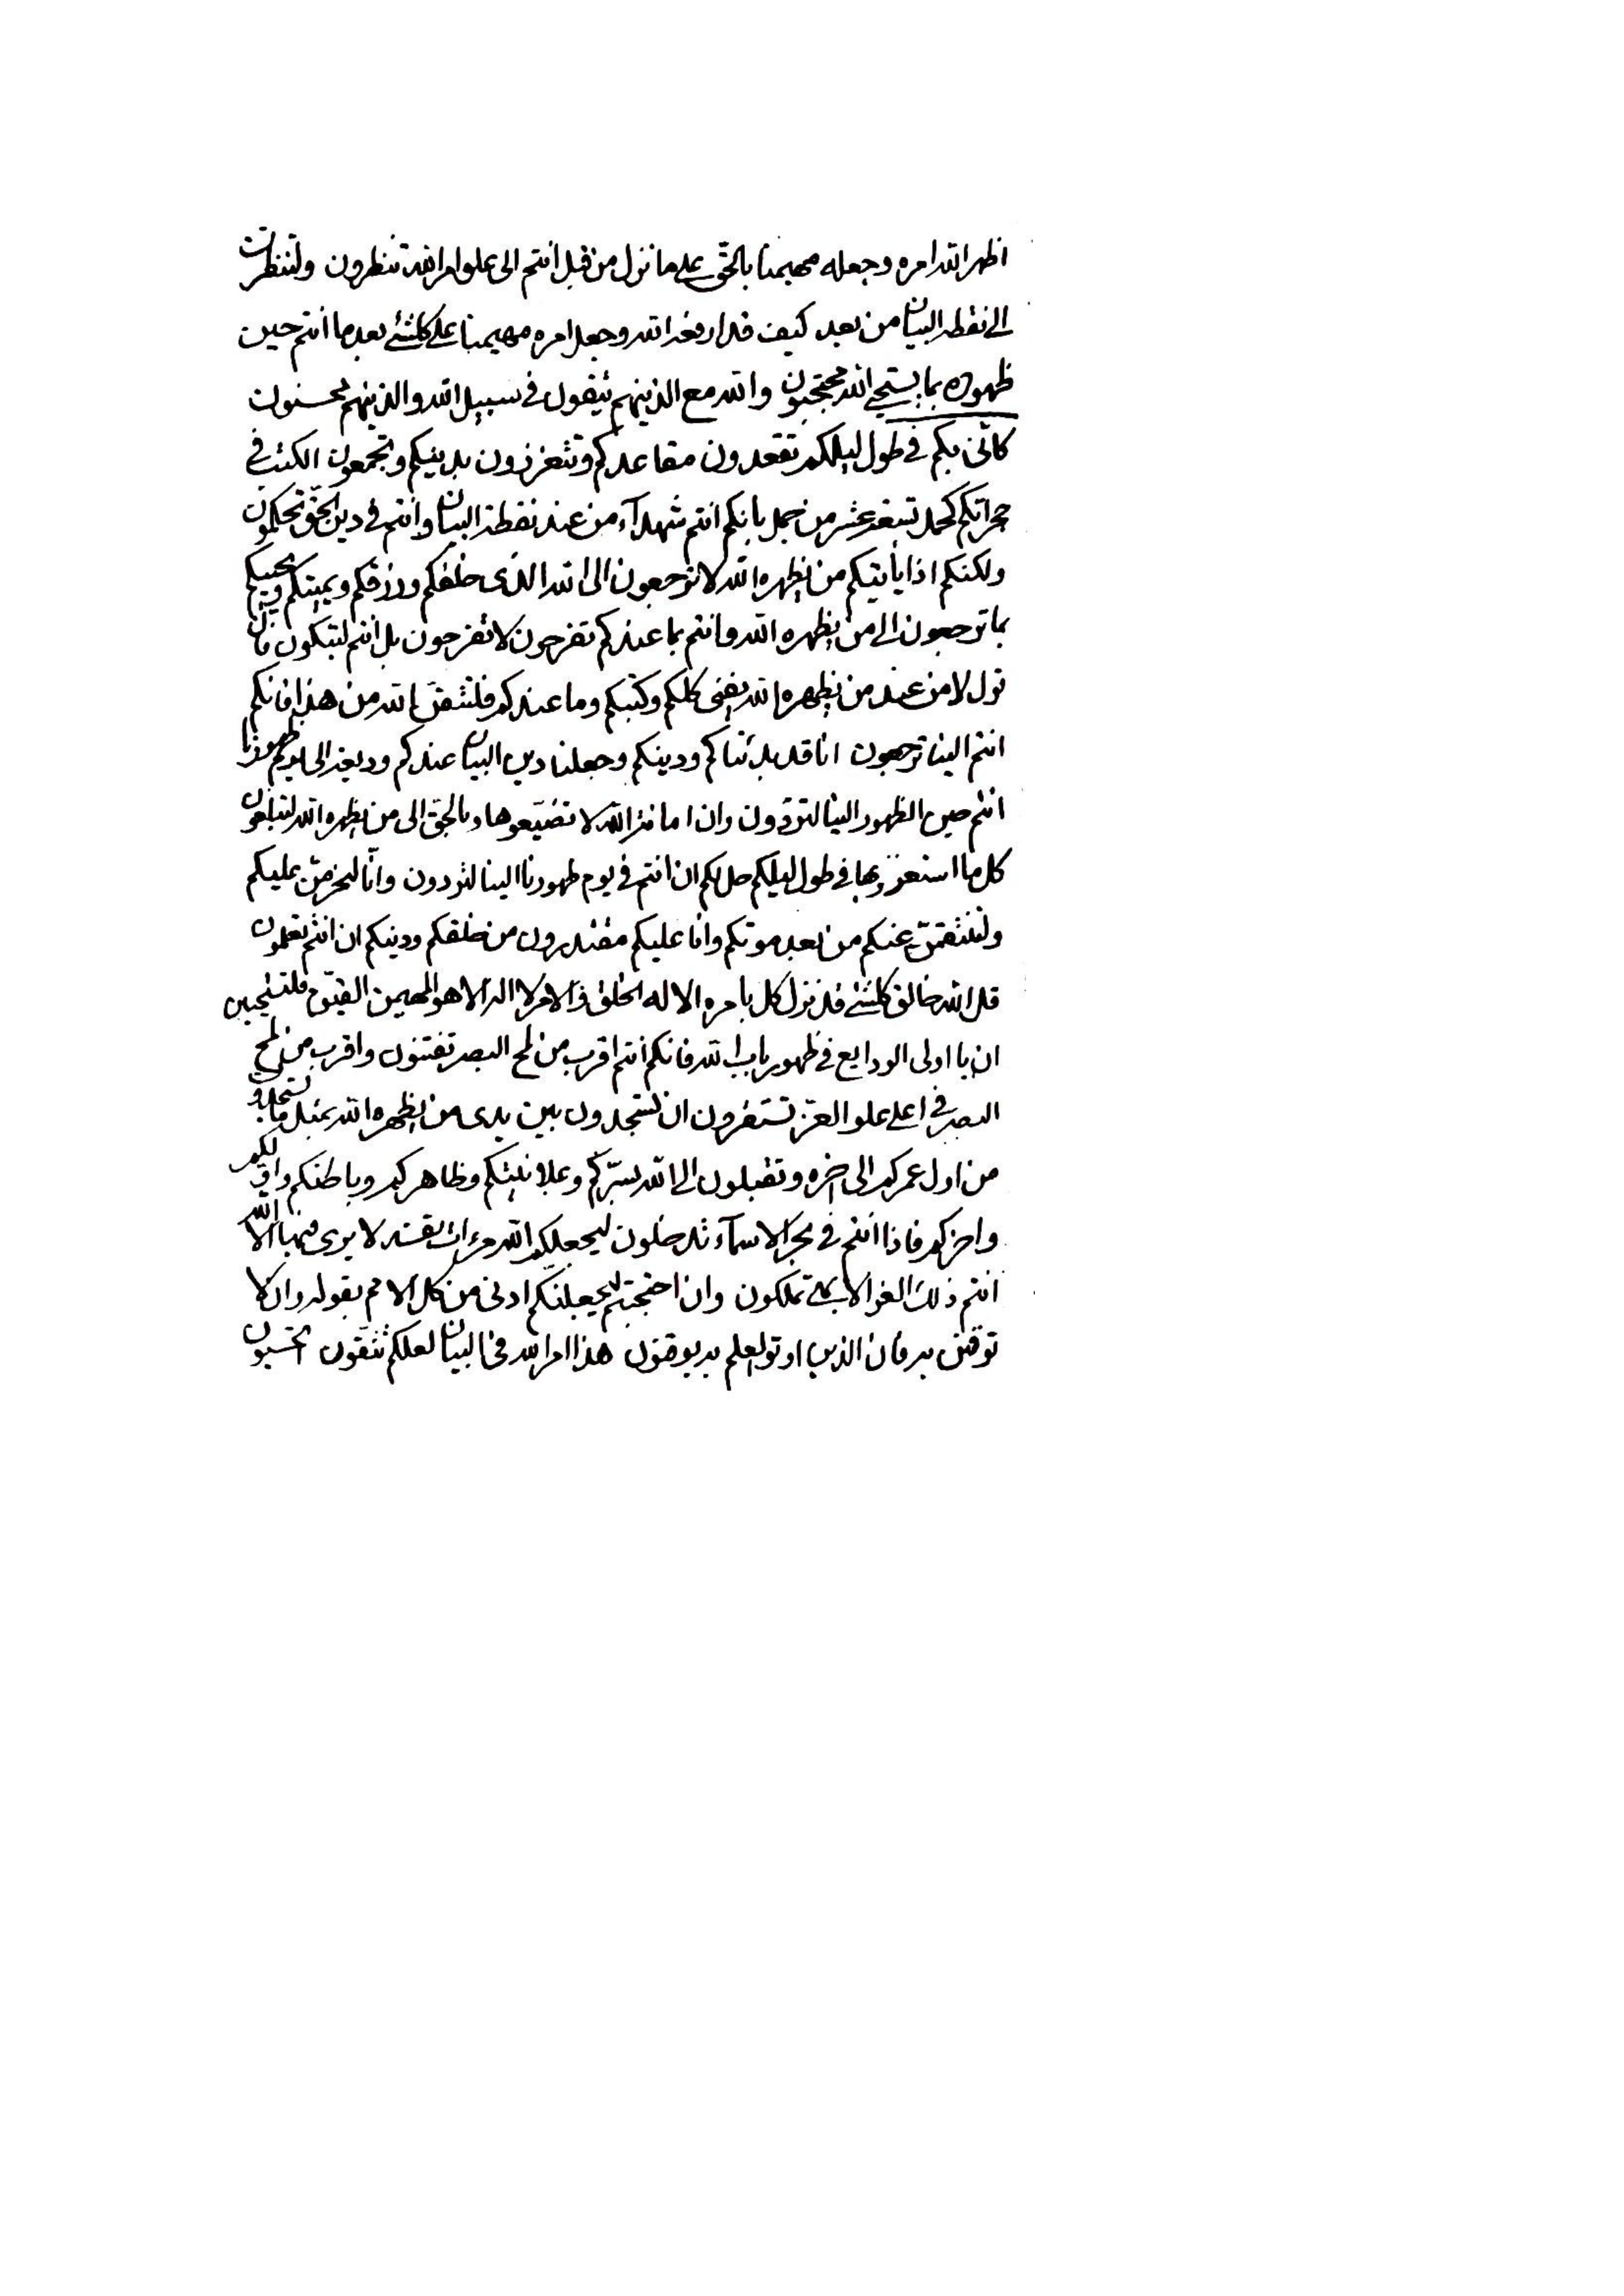 اظهر الله امره وجعله مهيمنا بالحق على ما نزل من قبل انتم الى علو امر الله تنظرون ولتنظرن
الى نقطه البيان من بعد كيف قد ارفعه الله وجعل امره مهيمنا على كلشئ بعد ما انتم حين
ظهوره بما يستحي الله محتجبون والله مع الذينهم يتقون في سبيل الله والذينهم محسنون
كأني بكم في طول ليلكم تقعدون مقاعدكم وتتعززون بدينكم وتجمعون الكتب في
حجراتكم كحمل تسعة عشر من جمل بانكم انتم شهدآء من عند نقطة البيان وانتم في دين الحق تحكمون
ولكنكم اذا يأتيكم من يظهره الله لا ترجعون الى الله الذى خلقكم ورزقكم ويميتكم ويحييكم
بما ترجعون الى من يظهره الله وانتم بما عندكم تفرحون لا تفرحون بل انتم لتبكون فان
قول لا من عند من يظهره الله يفنى كلكم وكتبكم وما عندكم فلتتقن الله من هذا فانكم
انتم الينا ترجعون انا قد بدئناكم ودينكم وجعلنا دين البيان عندكم وديعة الى يوم ظهورنا
انتم حين الظهور الينا لتردون وان امانة الله لا تضيعوها وبالحق الى من يظهره الله لتبلغون
كل ما استعززتم بها في طول ليلكم حل لكم ان انتم في يوم ظهورنا الينا لتردون وانا لنحرمن عليكم
ولننتقمن عنكم من بعد موتكم وانا عليكم مقتدرون من خلقكم ودينكم ان انتم تعلمون
قل الله خالق كلشئ قد نزل كل بامره الا له الخلق والامر لا اله الا هو المهيمن القيوم فلتستحيين
ان يا اولى الودايع في ظهور باب الله فانكم انتم اقرب من لمح البصر تفتنون واقرب من لمح
البصر في اعلى علو العز تستقرون ان تسجدون بين يدى من يظهره الله بمثل ما تسجدون
من اول عمركم الى اخره وتقبلون الى الله بسركم وعلانيتكم وظاهركم وباطنكم واولكم
واخركم فاذا انتم في بحر الاسماء تدخلون ليجعلكم الله مرءات نفسه لا يرى فيها الا الله
انتم ذلك العز الابهى تملكون وان احتجبتم ليجعلنكم ادنى من كل الامم بقوله وان لا
توقنن به فان الذين اوتو العلم به يوقنون هذا امر الله في البيان لعلكم تتقون